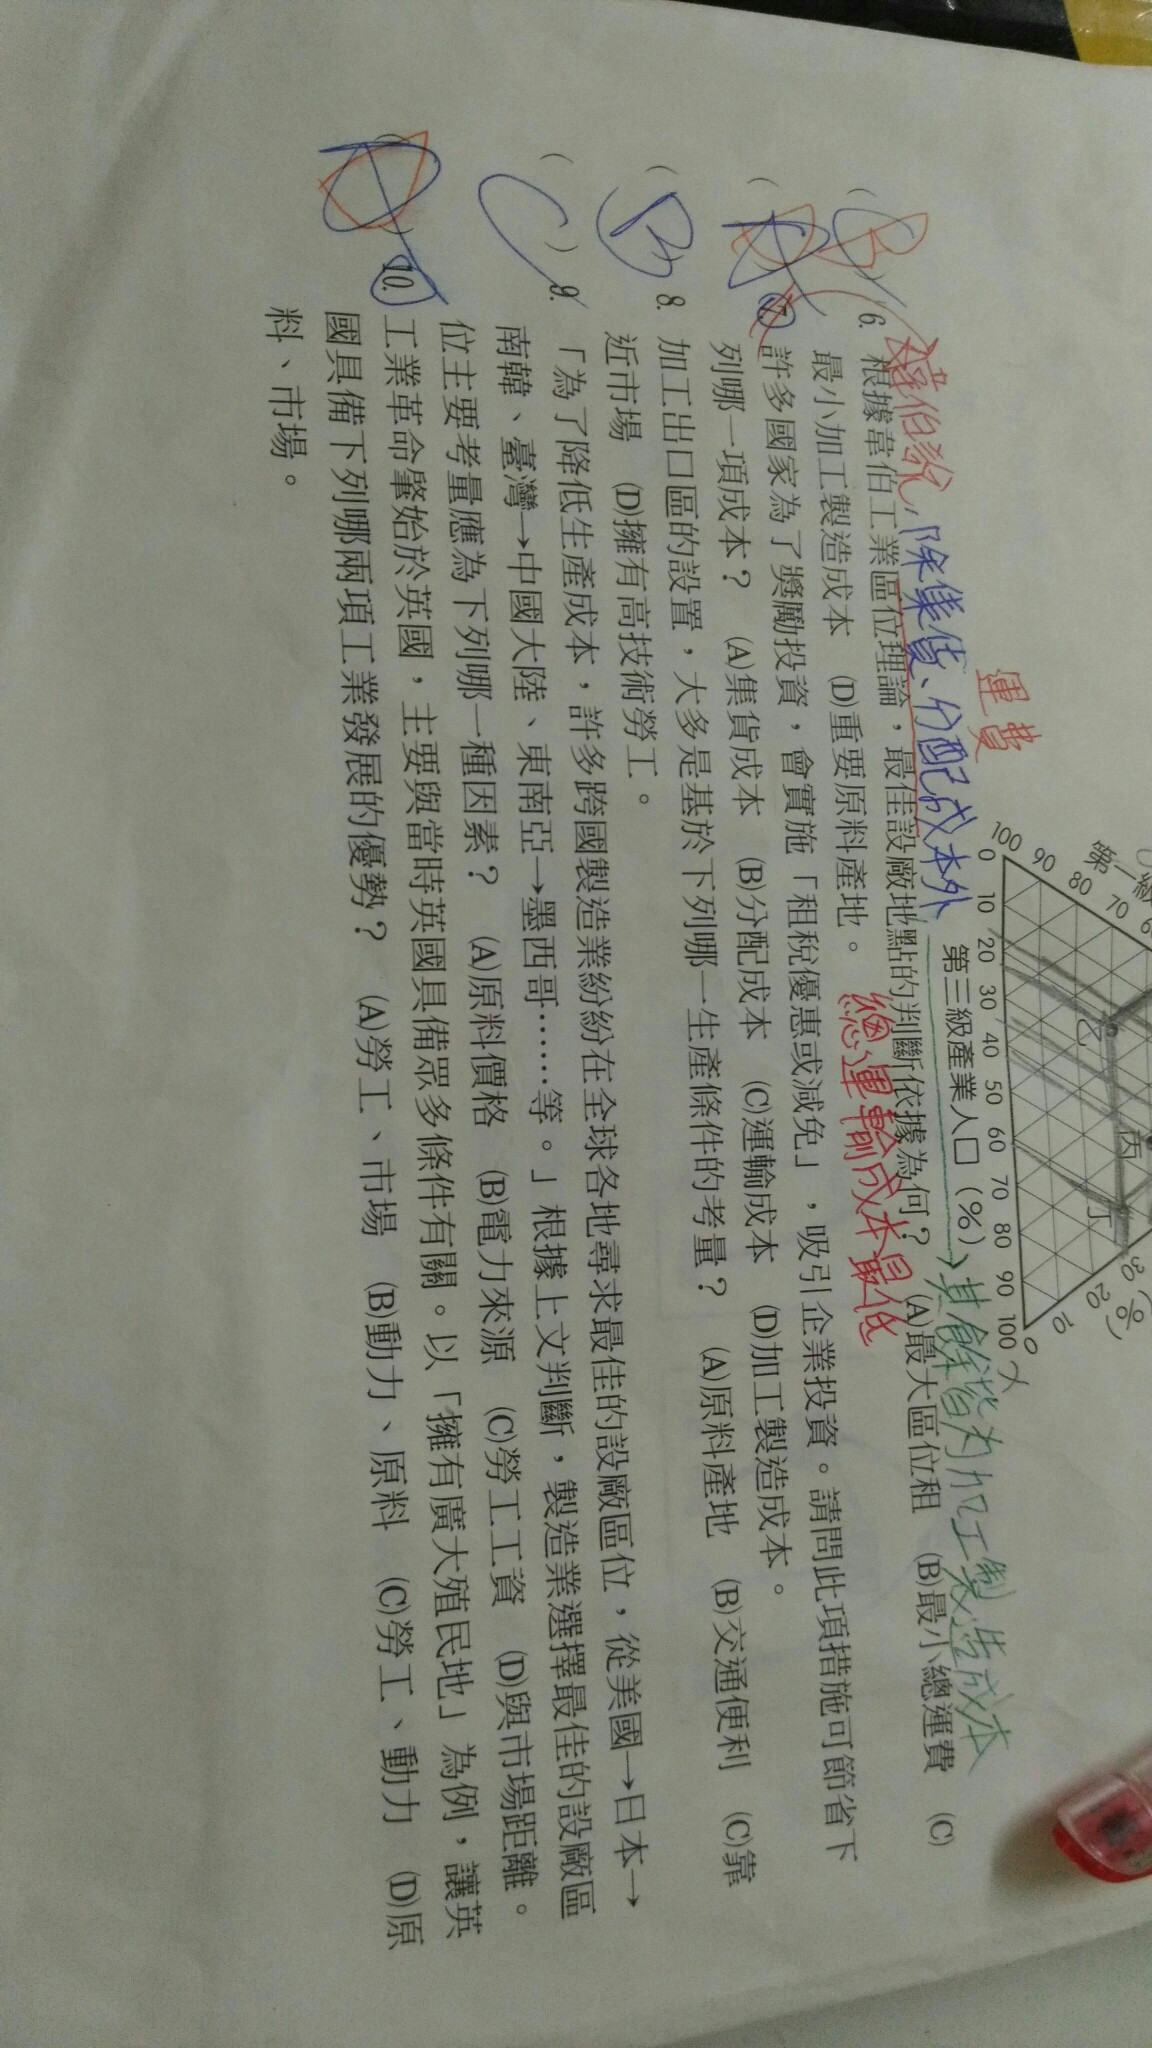 第一級
100 90 80 70
0 10 20 30 40 50 60 70 80 90 100
0 10 20 30
(%)
乙 丙 丁
第三級產業人口(%)
運費
韋伯說,除集貨、分配成本外→其餘皆為加工製造成本
(B)6. 根據韋伯工業區位理論,最佳設廠地點的判斷依據為何? (A)最大區位租 (B)最小總運費 (C)
最小加工製造成本 (D)重要原料產地。
總運輸成本最低
( )7. 許多國家為了獎勵投資,會實施「租稅優惠或減免」,吸引企業投資。請問此項措施可節省下
列哪一項成本? (A)集貨成本 (B)分配成本 (C)運輸成本 (D)加工製造成本。
(B)8. 加工出口區的設置,大多是基於下列哪一生產條件的考量? (A)原料產地 (B)交通便利 (C)靠
近市場 (D)擁有高技術勞工。
(C)9. 「為了降低生產成本,許多跨國製造業紛紛在全球各地尋求最佳的設廠區位,從美國→日本→
南韓、臺灣→中國大陸、東南亞→墨西哥……等。」根據上文判斷,製造業選擇最佳的設廠區
位主要考量應為下列哪一種因素? (A)原料價格 (B)電力來源 (C)勞工工資 (D)與市場距離。
( )10. 工業革命肇始於英國,主要與當時英國具備眾多條件有關。以「擁有廣大殖民地」為例,讓英
國具備下列哪兩項工業發展的優勢? (A)勞工、市場 (B)動力、原料 (C)勞工、動力 (D)原
料、市場。